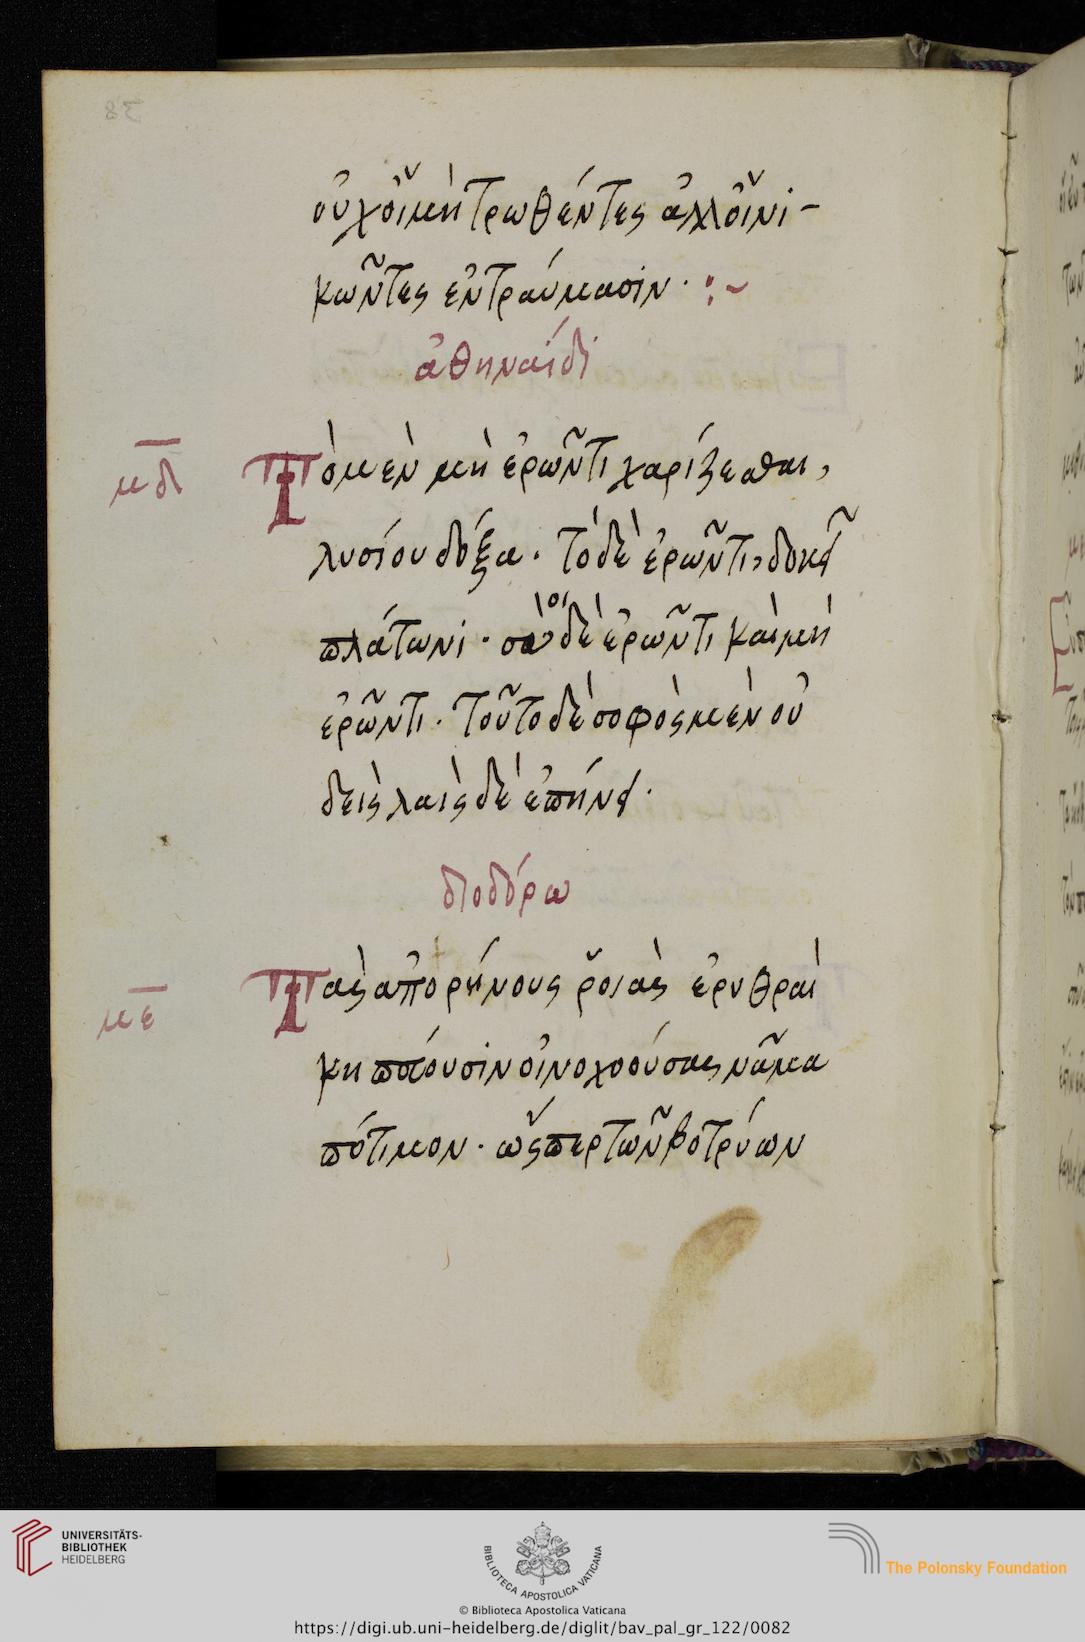 38
οὐχ οἵ μὴ τρωθέντες ἀλλ οἵ νι-
κῶντες ἐν τραύμασιν · :~
ἀθηναίδι
μδ
Τὸ μὲν μὴ ἐρῶντι χαρίζεσθαι,
λυσίου δόξα · τὸ δὲ ἐρῶντι, δοκεῖ
πλάτωνι · σοὶ δὲ ἐρῶντι καὶ μὴ
ἐρῶντι · τοῦτο δὲ σοφὸς μὲν οὐ
δεὶς λαὶς δὲ ἐπήνει ·
διοδόρω
με
Τὰς ἀπορήνους ῥοιὰς ἐρυθραὶ
κηποίουσιν οἰνοχοούσας νᾶμα
πότιμον · ὥςπερ τῶν βοτρύων
UNIVERSITÄTS-
BIBLIOTHEK
HEIDELBERG
BIBLIOTECA APOSTOLICA VATICANA
The Polonsky Foundation
© Biblioteca Apostolica Vaticana
https://digi.ub.uni-heidelberg.de/diglit/bav_pal_gr_122/0082